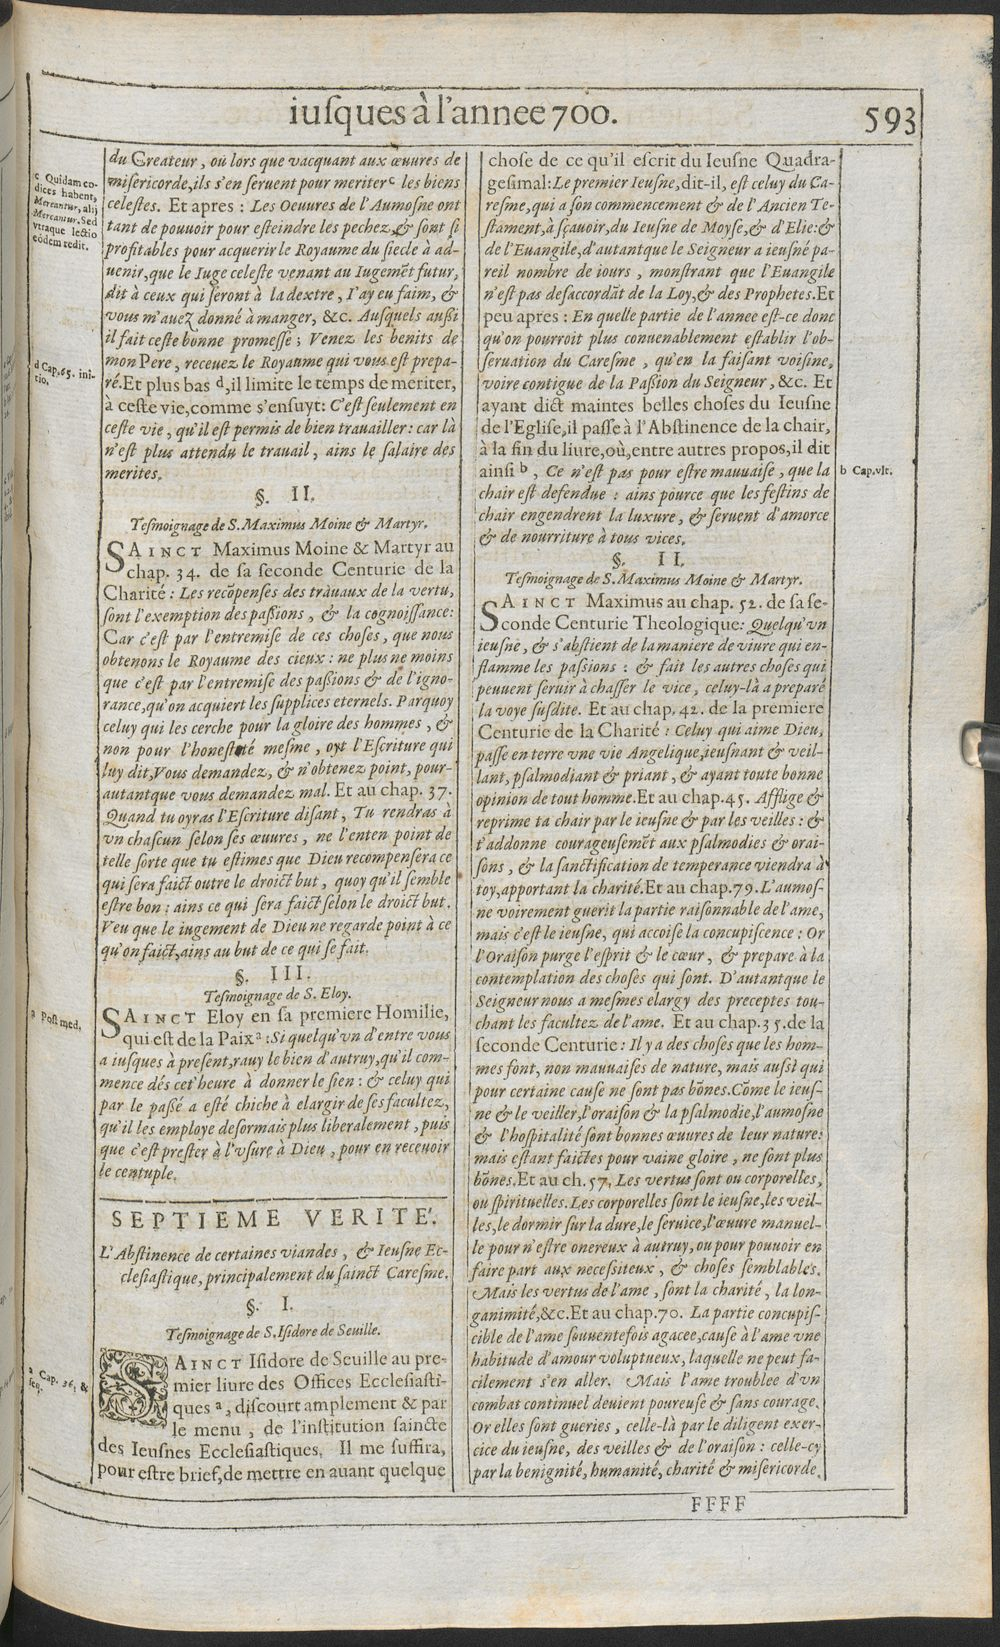 iuſques à l'annee 700.
593
du Createur, où lors que vacquant aux œuures de
miſericorde, ils s'en ſeruent pour meriter c les biens
celeſtes. Et apres : Les Oeuures de l'Aumoſne ont
tant de pouuoir pour eſteindre les pechez, & ſont ſi
profitables pour acquerir le Royaume du ſiecle à ad-
uenir, que le Iuge celeſte venant au Iugemēt futur,
dit à ceux qui ſeront à la dextre, I'ay eu faim, &
vous m'auez donné à manger, &c. Auſquels auſſi
il fait ceſte bonne promeſſe ; Venez les benits de
mon Pere, receuez le Royaume qui vous eſt prepa-
ré. Et plus bas d, il limite le temps de meriter,
à ceſte vie, comme s'enſuyt: C'eſt ſeulement en
ceſte vie, qu'il eſt permis de bien trauailler: car là
n'eſt plus attendu le trauail, ains le ſalaire des
merites.
c Quidam co-
dices habent,
Mereantur, alij
Mercantur. Sed
vtraque lectio
eōdem redit.
d Cap. 65. ini-
tio.
§. II.
Teſmoignage de S. Maximus Moine & Martyr.
SAINCT Maximus Moine & Martyr au
chap. 34. de ſa ſeconde Centurie de la
Charité : Les recōpenſes des trauaux de la vertu,
ſont l'exemption des paſſions, & la cognoiſſance:
Car c'eſt par l'entremiſe de ces choſes, que nous
obtenons le Royaume des cieux : ne plus ne moins
que c'eſt par l'entremiſe des paſſions & de l'igno-
rance, qu'on acquiert les ſupplices eternels. Parquoy
celuy qui les cerche pour la gloire des hommes, &
non pour l'honeſteté meſme, oyt l'Eſcriture qui
luy dit, Vous demandez, & n'obtenez point, pour-
autant que vous demandez mal. Et au chap. 37.
Quand tu oyras l'Eſcriture diſant, Tu rendras à
vn chaſcun ſelon ſes œuures, ne l'enten point de
telle ſorte que tu eſtimes que Dieu recompenſera ce
qui ſera faict outre le droict but, quoy qu'il ſemble
eſtre bon : ains ce qui ſera faict ſelon le droict but.
Veu que le iugement de Dieu ne regarde point à ce
qu'on faict, ains au but de ce qui ſe fait.
§. III.
Teſmoignage de S. Eloy.
SAINCT Eloy en ſa premiere Homilie,
qui eſt de la Paix a : Si quelqu'vn d'entre vous
a iuſques à preſent, rauy le bien d'autruy, qu'il com-
mence dés cet'heure à donner le ſien : & celuy qui
par le paſſé a eſté chiche à elargir de ſes facultez,
qu'il les employe deſormais plus liberalement, puis
que c'eſt preſter à l'vſure à Dieu, pour en receuoir
le centuple.
a Poſt med.
SEPTIEME VERITE'.
L'Abſtinence de certaines viandes, & Ieuſne Ec-
cleſiaſtique, principalement du ſainct Careſme.
§. I.
Teſmoignage de S. Iſidore de Seuille.
SAINCT Iſidore de Seuille au pre-
mier liure des Offices Eccleſiaſti-
ques a, diſcourt amplement & par
le menu, de l'inſtitution ſaincte
des Ieuſnes Eccleſiaſtiques. Il me ſuffira,
pour eſtre brief, de mettre en auant quelque
a Cap. 36, &
ſeq.
choſe de ce qu'il eſcrit du Ieuſne Quadra-
geſimal: Le premier Ieuſne, dit-il, eſt celuy du Ca-
reſme, qui a ſon commencement & de l'Ancien Te-
ſtament, à ſçauoir, du Ieuſne de Moyſe, & d'Elie: &
de l'Euangile, d'autant que le Seigneur a ieuſné pa-
reil nombre de iours, monſtrant que l'Euangile
n'eſt pas deſaccordāt de la Loy, & des Prophetes. Et
peu apres : En quelle partie de l'annee eſt-ce donc
qu'on pourroit plus conuenablement eſtablir l'ob-
ſeruation du Careſme, qu'en la faiſant voiſine,
voire contigue de la Paſſion du Seigneur, &c. Et
ayant dict maintes belles choſes du Ieuſne
de l'Egliſe, il paſſe à l'Abſtinence de la chair,
à la fin du liure, où, entre autres propos, il dit
ainſi b, Ce n'eſt pas pour eſtre mauuaiſe, que la
chair eſt defendue : ains pource que les feſtins de
chair engendrent la luxure, & ſeruent d'amorce
& de nourriture à tous vices.
b Cap. vlt.
§. II.
Teſmoignage de S. Maximus Moine & Martyr.
SAINCT Maximus au chap. 52. de ſa ſe-
conde Centurie Theologique: Quelqu'vn
ieuſne, & s'abſtient de la maniere de viure qui en-
flamme les paſſions : & fait les autres choſes qui
peuuent ſeruir à chaſſer le vice, celuy-là a preparé
la voye ſuſdite. Et au chap. 42. de la premiere
Centurie de la Charité : Celuy qui aime Dieu,
paſſe en terre vne vie Angelique, ieuſnant & veil-
lant, pſalmodiant & priant, & ayant toute bonne
opinion de tout homme. Et au chap. 45. Afflige &
reprime ta chair par le ieuſne & par les veilles : &
t'addonne courageuſemēt aux pſalmodies & orai-
ſons, & la ſanctification de temperance viendra à
toy, apportant la charité. Et au chap. 79. L'aumoſ-
ne voirement guerit la partie raiſonnable de l'ame,
mais c'eſt le ieuſne, qui accoiſe la concupiſcence : Or
l'Oraiſon purge l'eſprit & le cœur, & prepare à la
contemplation des choſes qui ſont. D'autant que le
Seigneur nous a meſmes elargy des preceptes tou-
chant les facultez de l'ame. Et au chap. 35. de la
ſeconde Centurie : Il y a des choſes que les hom-
mes font, non mauuaiſes de nature, mais auſſi qui
pour certaine cauſe ne ſont pas bōnes. Cōme le ieuſ-
ne & le veiller, l'oraiſon & la pſalmodie, l'aumoſne
& l'hoſpitalité ſont bonnes œuures de leur nature:
mais eſtant faictes pour vaine gloire, ne ſont plus
bōnes. Et au ch. 57. Les vertus ſont ou corporelles,
ou ſpirituelles. Les corporelles ſont le ieuſne, les veil-
les, le dormir ſur la dure, le ſeruice, l'œuure manuel-
le pour n'eſtre onereux à autruy, ou pour pouuoir en
faire part aux neceſſiteux, & choſes ſemblables.
Mais les vertus de l'ame, ſont la charité, la lon-
ganimité, &c. Et au chap. 70. La partie concupiſ-
cible de l'ame ſouuentefois agacee, cauſe à l'ame vne
habitude d'amour voluptueux, laquelle ne peut fa-
cilement s'en aller. Mais l'ame troublee d'vn
combat continuel deuient poureuſe & ſans courage.
Or elles ſont gueries, celle-là par le diligent exer-
cice du ieuſne, des veilles & de l'oraiſon : celle-cy
par la benignité, humanité, charité & miſericorde.
FFFF